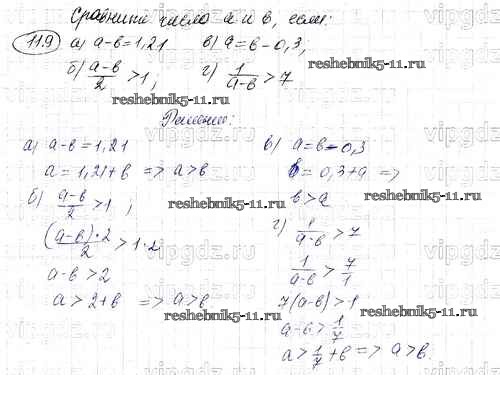 Сравните числа a и в, если:
11.9 а) a-в=1,21 в) a=в-0,3;
б) (a-в)/2 >1; г) 1/(a-в) >7
reshebnik5-11.ru reshebnik5-11.ru
Решение:
а) a-в=1,21
a=1,21+в => a>в
б) (a-в)/2 >1;
((a-в)·2)/2 >1·2
a-в>2
a>2+в => a>в
в) a=в-0,3
в=0,3+a =>
в>a
г) 1/(a-в) >7
1/(a-в) > 7/1
7(a-в)>1
a-в> 1/7
a> 1/7 +в => a>в.
reshebnik5-11.ru
reshebnik5-11.ru
reshebnik5-11.ru
reshebnik5-11.ru
vipgdz.ru
vipgdz.ru
vipgdz.ru
vipgdz.ru